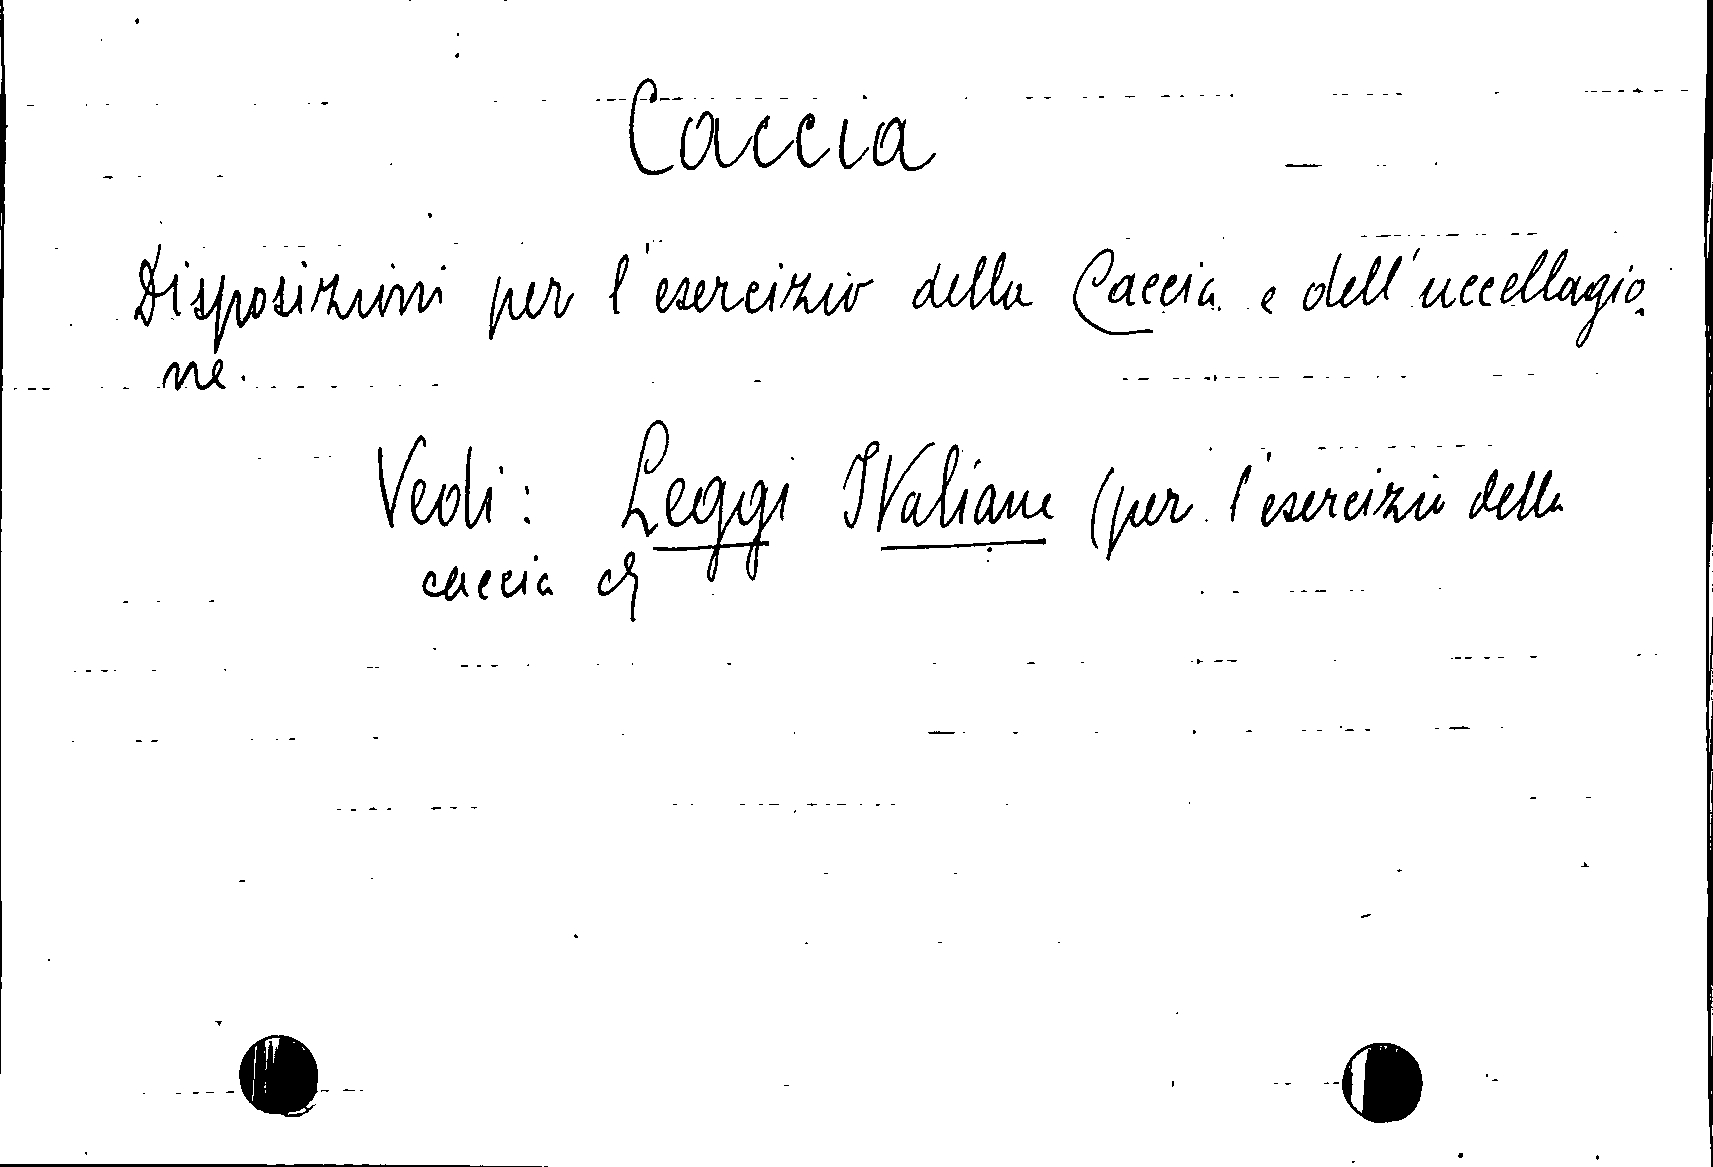 Caccia
Disposizioni per l'esercizio della Caccia e dell'uccellagio
ne.
Vedi: Leggi Italiane (per l'esercizio della
caccia